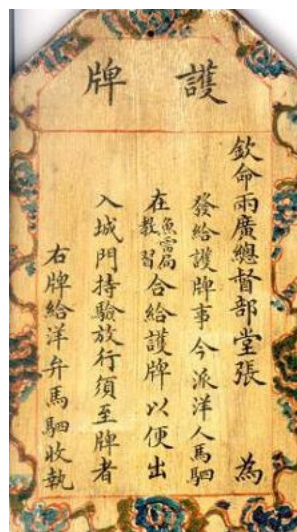 護牌
欽命兩廣總督部堂張 為
發給護牌事今派洋人馬駟
在魚雷局教習合給護牌以便出
入城門持驗放行須至牌者
右牌給洋弁馬駟收執